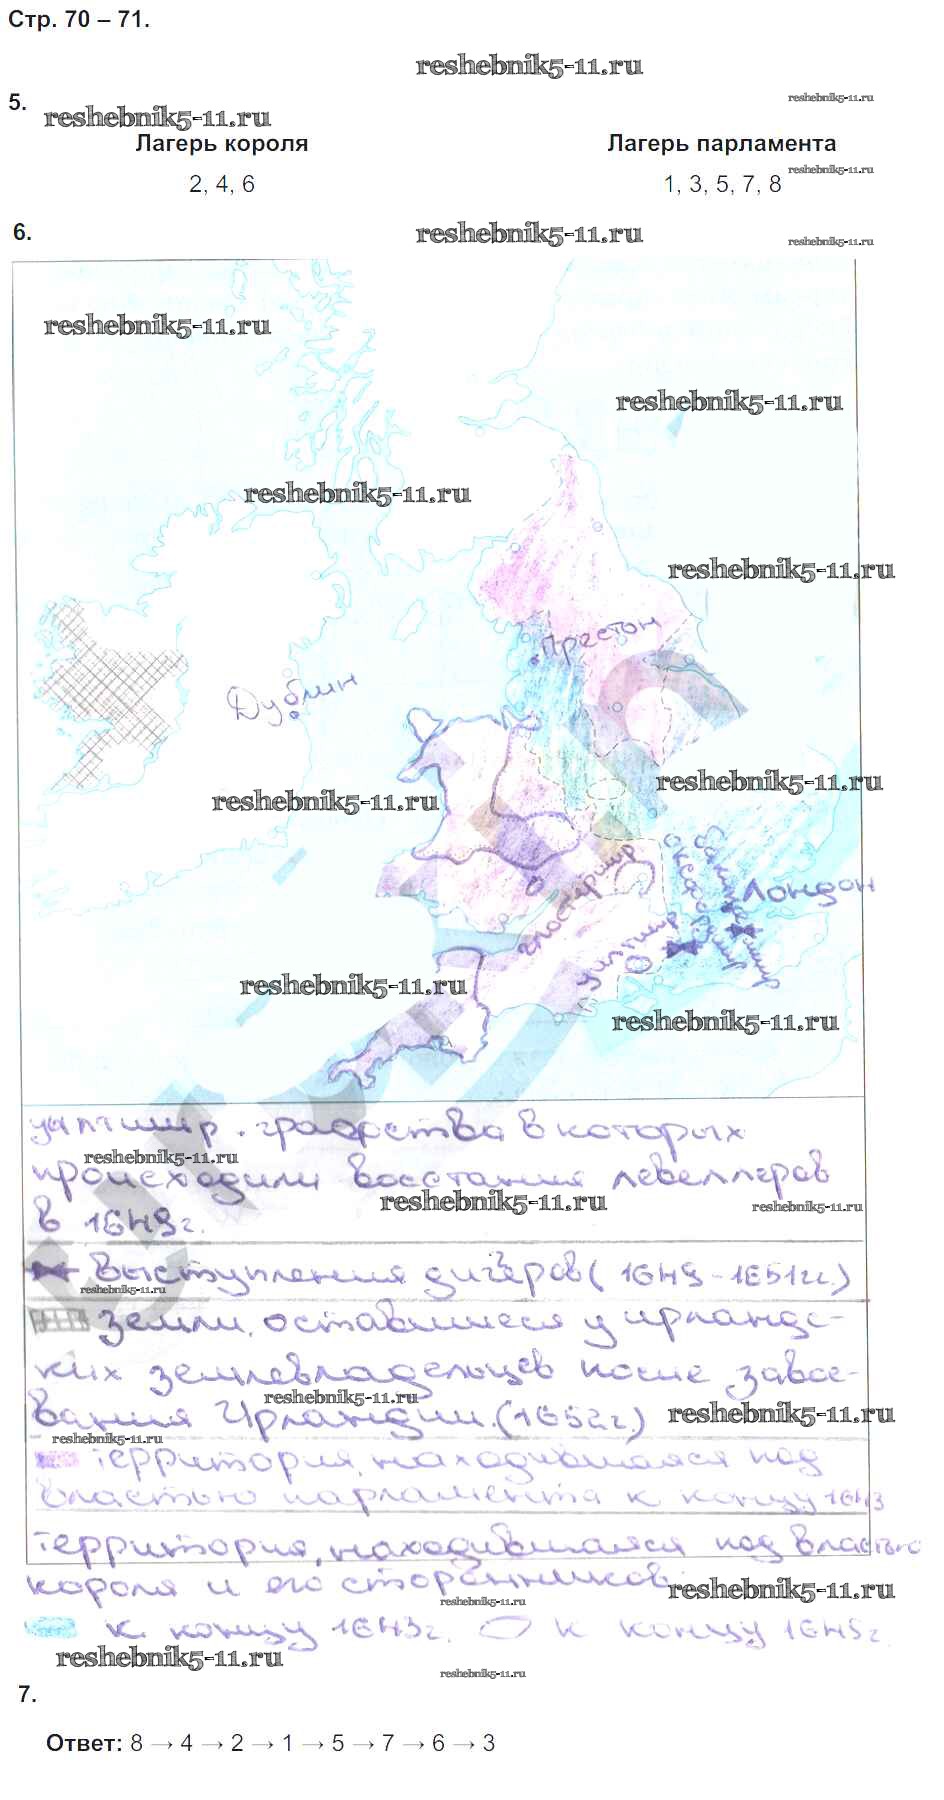 Стр. 70 – 71.
reshebnik5-11.ru
5.
reshebnik5-11.ru
reshebnik5-11.ru
Лагерь короля
Лагерь парламента
reshebnik5-11.ru
2, 4, 6
1, 3, 5, 7, 8
6.
reshebnik5-11.ru
reshebnik5-11.ru
reshebnik5-11.ru
reshebnik5-11.ru
reshebnik5-11.ru
reshebnik5-11.ru
Престон
Дублин
reshebnik5-11.ru
reshebnik5-11.ru
Лондон
глостершир
уилтшир
reshebnik5-11.ru
reshebnik5-11.ru
графства в которых
reshebnik5-11.ru
происходили восстания левеллеров
reshebnik5-11.ru
reshebnik5-11.ru
в 1649г.
Выступления диггеров (1649-1651гг.)
reshebnik5-11.ru
Земли, оставшиеся у ирландс-
ких землевладельцев после завое-
reshebnik5-11.ru
вания Ирландии.(1652г.)
reshebnik5-11.ru
reshebnik5-11.ru
территория, находившаяся под
властью парламента к концу 1643
территория, находившаяся под властью
короля и его сторонников
reshebnik5-11.ru
reshebnik5-11.ru
к концу 1643г. к концу 1645г.
reshebnik5-11.ru
reshebnik5-11.ru
7.
Ответ: 8 → 4 → 2 → 1 → 5 → 7 → 6 → 3